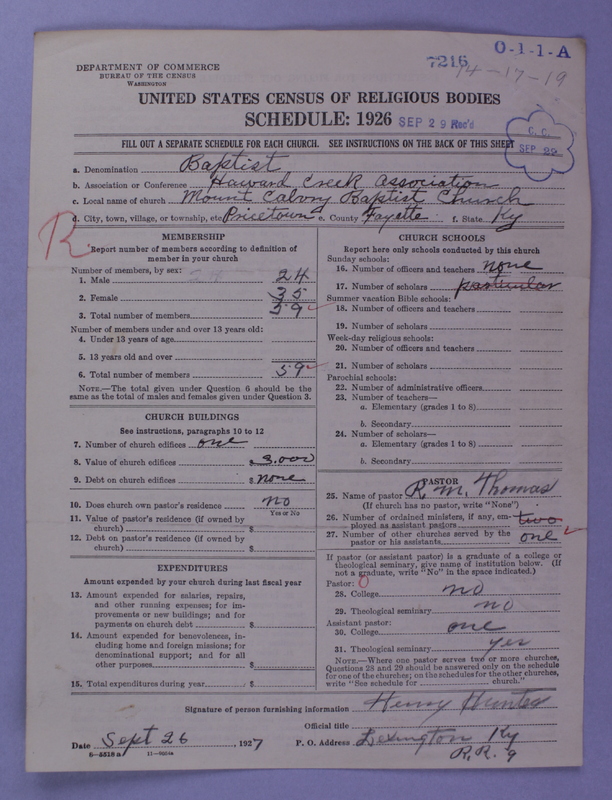 7216
O-1-1-A
14-17-19
DEPARTMENT OF COMMERCE
BUREAU OF THE CENSUS
WASHINGTON
UNITED STATES CENSUS OF RELIGIOUS BODIES
SCHEDULE: 1926
SEP 29 Rec'd
FILL OUT A SEPARATE SCHEDULE FOR EACH CHURCH. SEE INSTRUCTIONS ON THE BACK OF THIS SHEET
C. C.
SEP 29
a. Denomination Baptist
b. Association or Conference Howard Creek Association
c. Local name of church Mount Calvory Baptist Church
d. City, town, village, or township, etc. Pricetown e. County Fayette f. State Ky
R
MEMBERSHIP
Report number of members according to definition of
member in your church
Number of members, by sex:
1. Male 24
2. Female 35
3. Total number of members 59
Number of members under and over 13 years old:
4. Under 13 years of age
5. 13 years old and over
6. Total number of members 59
NOTE.—The total given under Question 6 should be the
same as the total of males and females given under Question 3.
CHURCH BUILDINGS
See instructions, paragraphs 10 to 12
7. Number of church edifices one
8. Value of church edifices $ 3.000
9. Debt on church edifices $ none
10. Does church own pastor's residence? no
Yes or No
11. Value of pastor's residence (if owned by
church) $
12. Debt on pastor's residence (if owned by
church) $
EXPENDITURES
Amount expended by your church during last fiscal year
13. Amount expended for salaries, repairs,
and other running expenses; for im-
provements or new buildings; and for
payments on church debt $
14. Amount expended for benevolences, in-
cluding home and foreign missions; for
denominational support; and for all
other purposes $
15. Total expenditures during year $
CHURCH SCHOOLS
Report here only schools conducted by this church
Sunday schools:
16. Number of officers and teachers none
17. Number of scholars particular
Summer vacation Bible schools:
18. Number of officers and teachers
19. Number of scholars
Week-day religious schools:
20. Number of officers and teachers
21. Number of scholars
Parochial schools:
22. Number of administrative officers
23. Number of teachers—
a. Elementary (grades 1 to 8)
b. Secondary
24. Number of scholars—
a. Elementary (grades 1 to 8)
b. Secondary
PASTOR
25. Name of pastor R. M. Thomas
(If church has no pastor, write "None")
26. Number of ordained ministers, if any, em-
ployed as assistant pastors two
27. Number of other churches served by the
pastor or his assistants one
If pastor (or assistant pastor) is a graduate of a college or
theological seminary, give name of institution below. (If
not a graduate, write "No" in the space indicated.)
Pastor: 0
28. College no
29. Theological seminary no
Assistant pastor:
30. College one
31. Theological seminary yes
NOTE.—Where one pastor serves two or more churches,
Questions 28 and 29 should be answered only on the schedule
for one of the churches; on the schedules for the other churches,
write "See schedule for church."
Signature of person furnishing information Henry Hunter
Official title
Date Sept 26, 1927 P. O. Address Lexington Ky
R.R. 9
6-5518 a 11-9064a